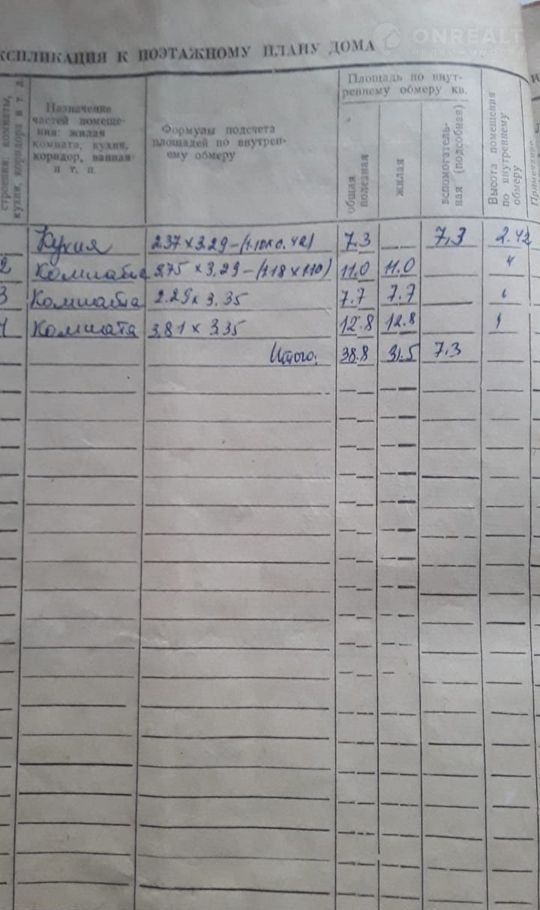 ONREALT
КСПЛИКАЦИЯ К ПОЭТАЖНОМУ ПЛАНУ ДОМА
строения: комнаты, кухни, коридора и т. д.
Назначение
частей помеще-
ния: жилая
комната, кухня,
коридор, ванная
и т. п.
Формулы подсчета
площадей по внутрен-
ему обмеру
Площадь по внут-
реннему обмеру кв.
общая
полезная
жилая
вспомогатель-
ная (подсобная)
Высота помещения
по внутреннему
обмеру
Кухня 2.37 х 3.29 – (1.10 х 0.42) 7.3 7,3 2.42
2 Комната 3.75 х 3,29 – (1.18 х 1.10) 11.0 11.0 "
3 Комната 2.29 х 3.35 7.7 7.7 "
4 Комната 3.81 х 3.35 12.8 12.8 "
Итого: 38.8 31.5 7.3